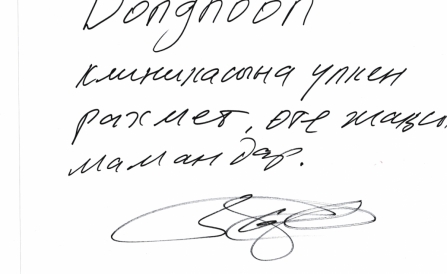 Donghoon
клиникасына үлкен
рахмет, өте жақсы
мамандар.